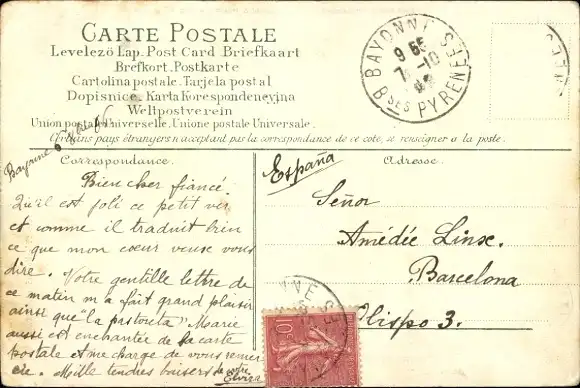 CARTE POSTALE
Levelező Lap. Post Card Briefkaart
Brefkort. Postkarte
Cartolina postale. Tarjeta postal
Dopisnice. Karta Korespondencyjna
Weltpostverein
Union postale Universelle. Unione postale Universale.
pays étrangers n'acceptant pas la correspondance de ce coté, se renseigner a la poste.
BAYONNE
Bses PYRENEES
9 55
7 - 10
Correspondance.
Adresse.
Bayonne
España
Bien cher fiancé.
Qu'il est joli ce petit ver
et comme il traduit bien
ce que mon coeur veuse vous
dire. Votre gentille lettre de
ce matin m'a fait grand plaisir
ainsi que "la pastoreta" Marie
aussi est enchantée de la carte
postale et me charge de vous remer
cie. Mille tendres baisers de votre
Elvira
Señor
Amédée Linse.
Barcelona
Olispo 3.